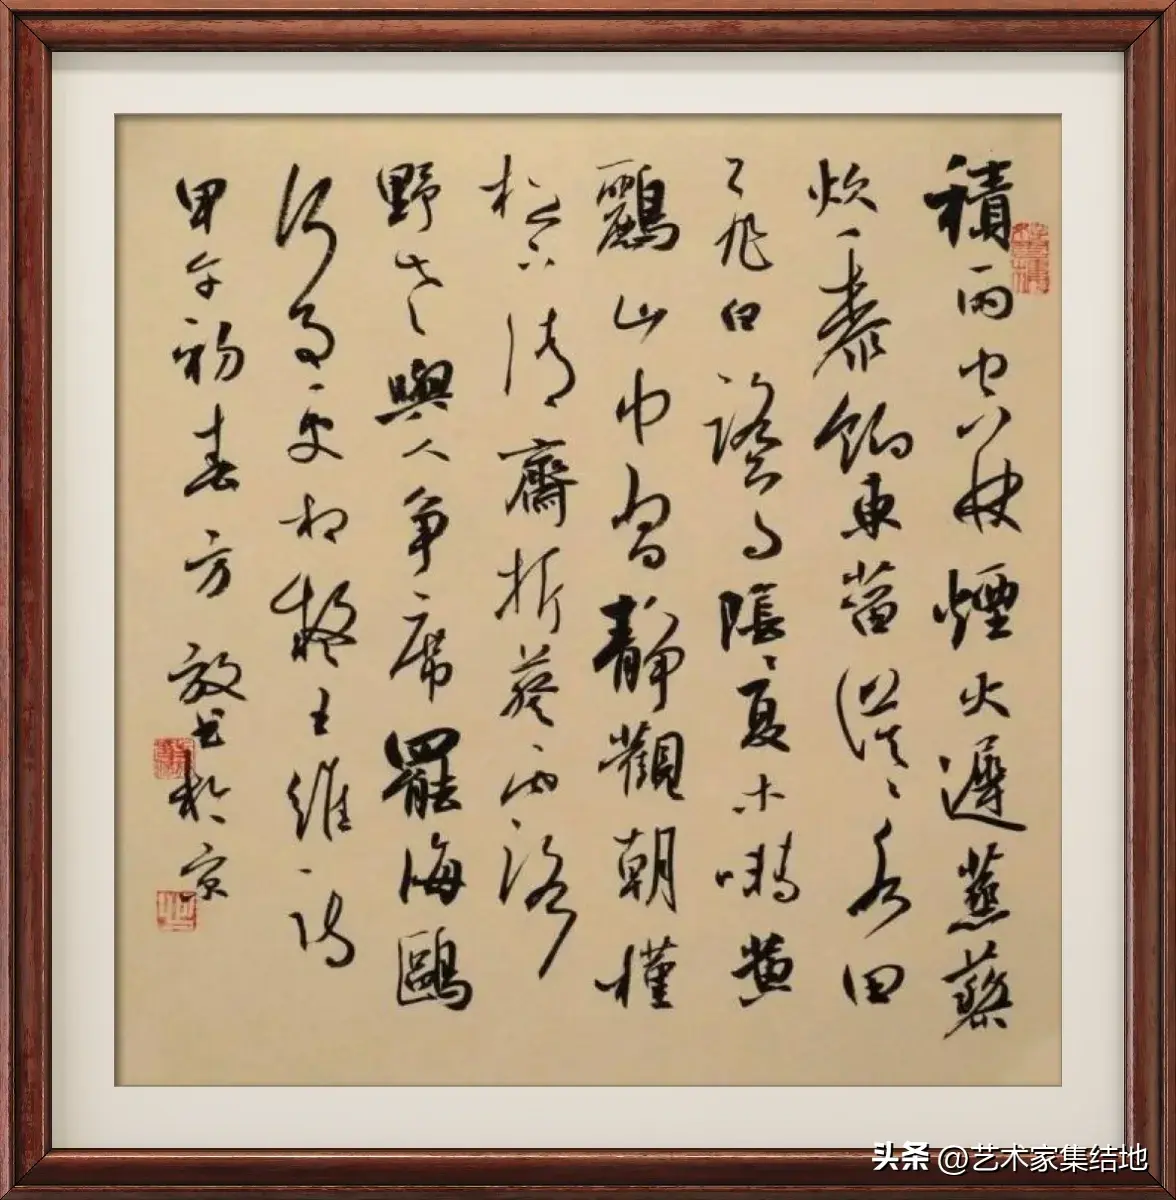 積雨空林煙火遲蒸藜
炊黍餉東菑漠〻水田
飛白鷺陰〻夏木囀黃
鸝山中習靜觀朝槿
松下清齋折葵露
野老與人爭席罷海鷗
何事更相疑王維詩
甲午初春方放書於京
头条 @艺术家集结地